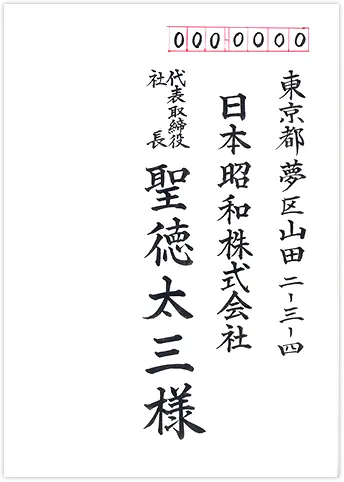 000-0000
東京都夢区山田二-三-四
日本昭和株式会社
代表取締役
社長
聖徳太三様